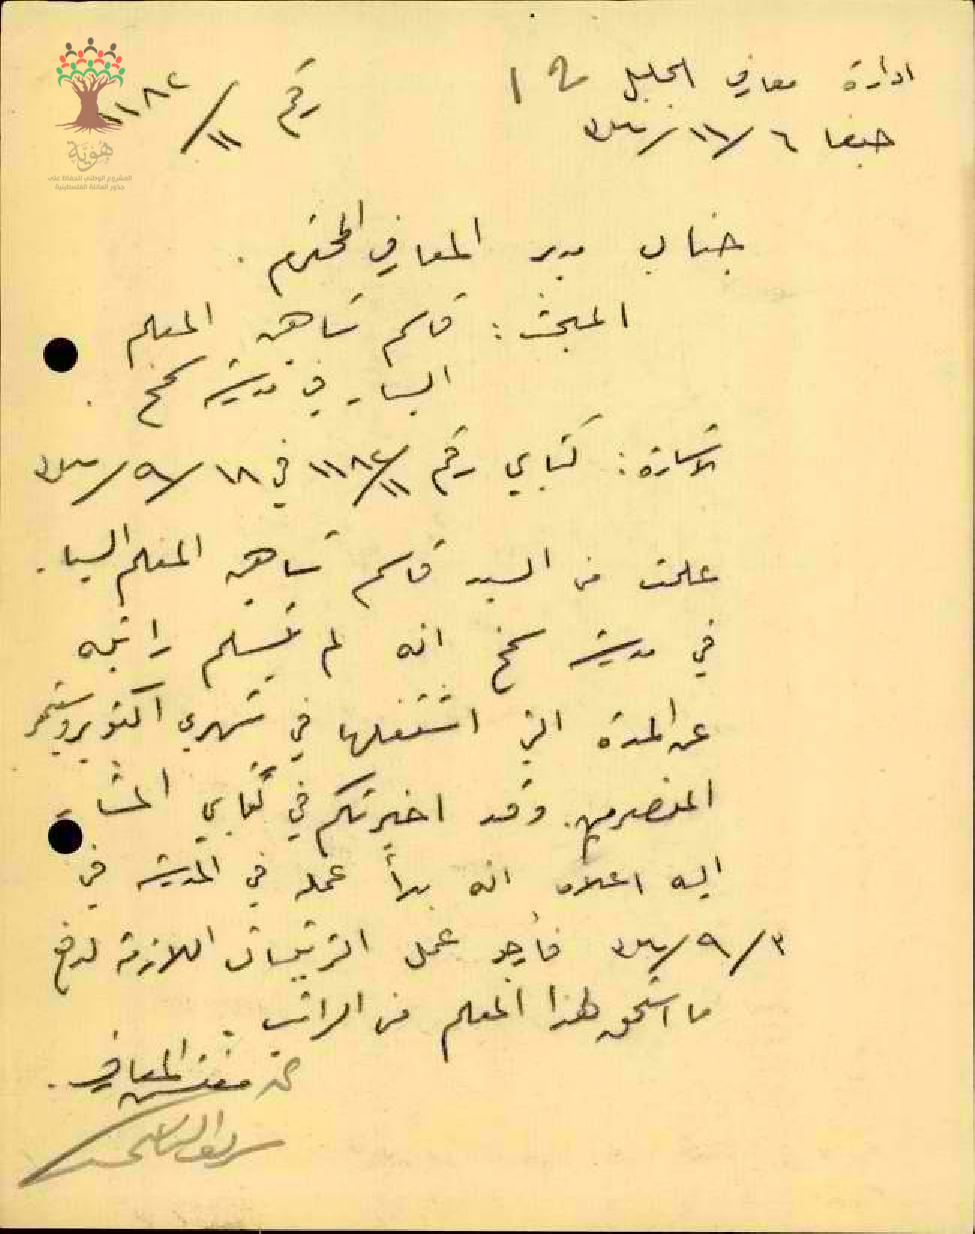 ادارة معارف الجليل
رقم ١١٨٢/١١
حيفا ٦/١١/
جناب مدير المعارف المحترم.
المبحث: قاسم شاهين المعلم
السيار في مدرسة
الاشارة: كتابي رقم ١١٨٢/١١ في ١٨/٩/
علمت من السيد قاسم شاهين المعلم السيار
في مدرسة انه لم يتسلم راتبه
عن المدة التي اشتغلها في شهري اكتوبر وسبتمبر
المنصرمين. وقد اخبرتكم في كتابي المشار
اليه اعلاه انه بدأ عمله في المدرسة في
٣/٩/ فأرجو عمل الترتيبات اللازمة لدفع
ما استحق لهذا المعلم من الراتب.
مفتش المعارف.
هُويّة
المشروع الوطني للحفاظ على
جذور العائلة الفلسطينية